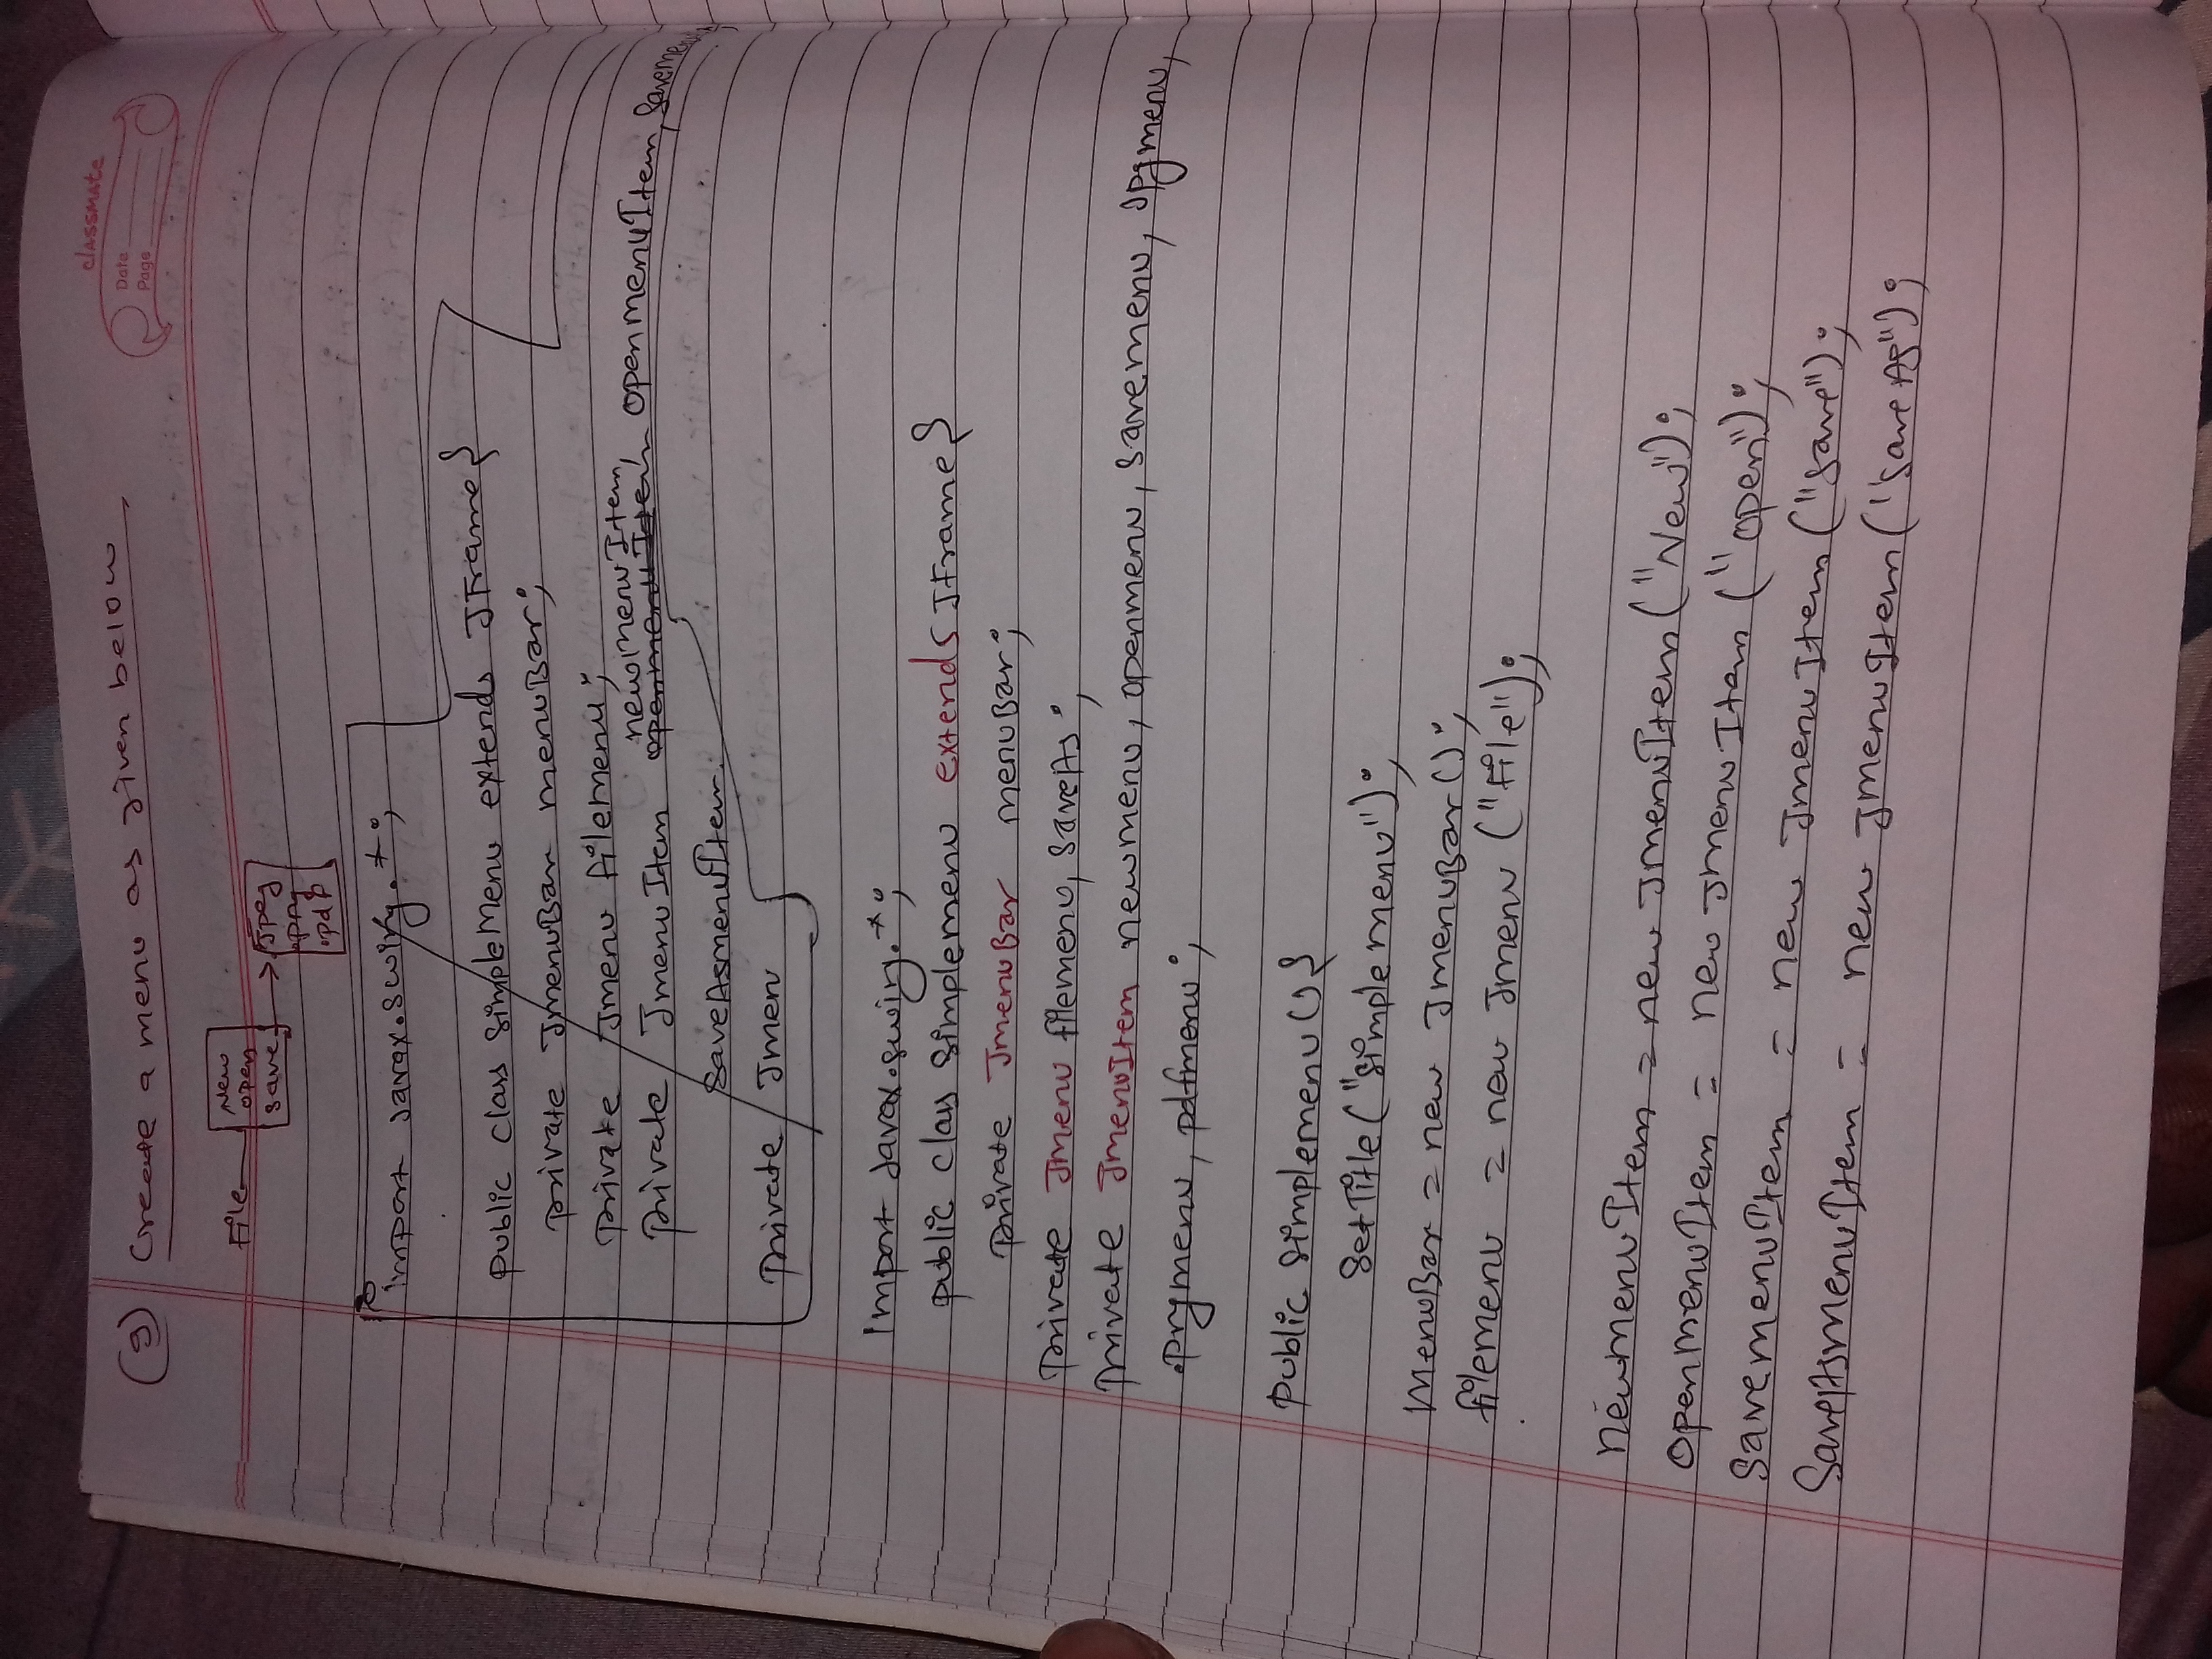 classmate
Date
Page
(9) Create a menu as given below
File
New
open
save
Jpeg
.png
.pdf
import Javax.swing.*;
public class SimpleMenu extends JFrame{
private JmenuBar menuBar;
private Jmenu filemenu;
newmenuItem,
private JmenuItem openmenuItem openmenuItem, Savemenu
SaveAsmenuItem.
private Jmen
import Javax.swing.*;
public class Simplemenu extends JFrame{
private JmenuBar menuBar;
private Jmenu filemenu, SaveAs;
private JmenuItem newmenu, openmenu, savemenu, Jpgmenu,
.pngmenu, pdfmenu;
public Simplemenu(){
SetTitle("Simple menu");
MenuBar = new JmenuBar();
filemenu = new Jmenu ("File");
newmenuItem = new JmenuItem ("New");
OpenmenuItem = new JmenuItem ("open");
SavemenuItem = new JmenuItem ("Save");
SaveAsmenuItem = new JmenuItem ("Save As");